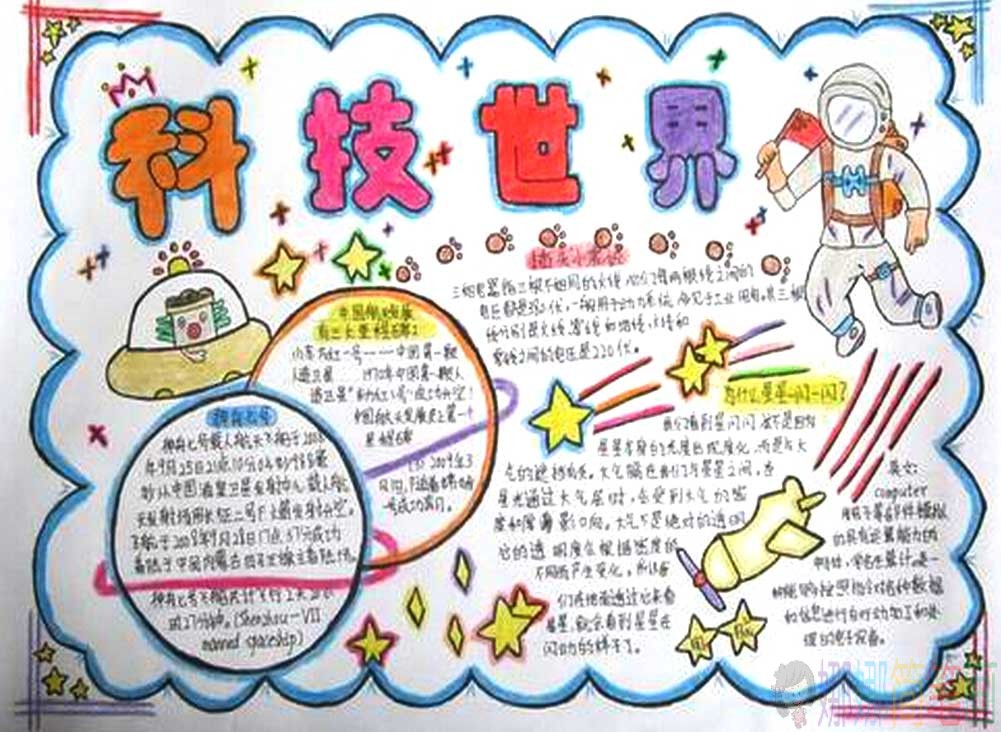 科技世界
中国航天发展
有三大里程碑：
——中国第一颗
人造卫星 1970年中国第一颗人
造卫星"东方红一号"成功升空！
中国航天发展史上第一个
里程碑
2009年3
月1日
号成功
神舟七号
神舟七号载人航天飞船于2008
年9月25日21点10分04秒988毫
秒从中国酒泉卫星发射中心载人航
天发射场用长征二号F火箭发射升空。
于2008年9月28日17点37分成功
着陆于中国内蒙古四子王旗主着陆场。
神舟七号飞船共计飞行2天20小
时27分钟。(Shenzhou-VII
manned spaceship)
小常识
三相电器的三根不相同的火线
电压都是380伏，一般用于动力系统
线分别是火线、零线和地线，火线和
零线之间的电压是220伏。
为什么星星一闪一闪？
我们看到星闪闪，这不是因为
星星本身的光度出现变化，而是与大
气的遮挡有关。大气隔在我们与星星之间，当
星光通过大气层时，会受到大气的密
度和厚薄影响。大气不是绝对的透明，
它的透明度会根据密度的
不同而产生变化，所以我
们在地面透过它来看
星星，就会看到星星在
闪动的样子了。
英文：
computer
的具有运算能力的
机能够按照指令对各种数据
和信息进行自动加工和处
理的电子设备。
娜娜简笔